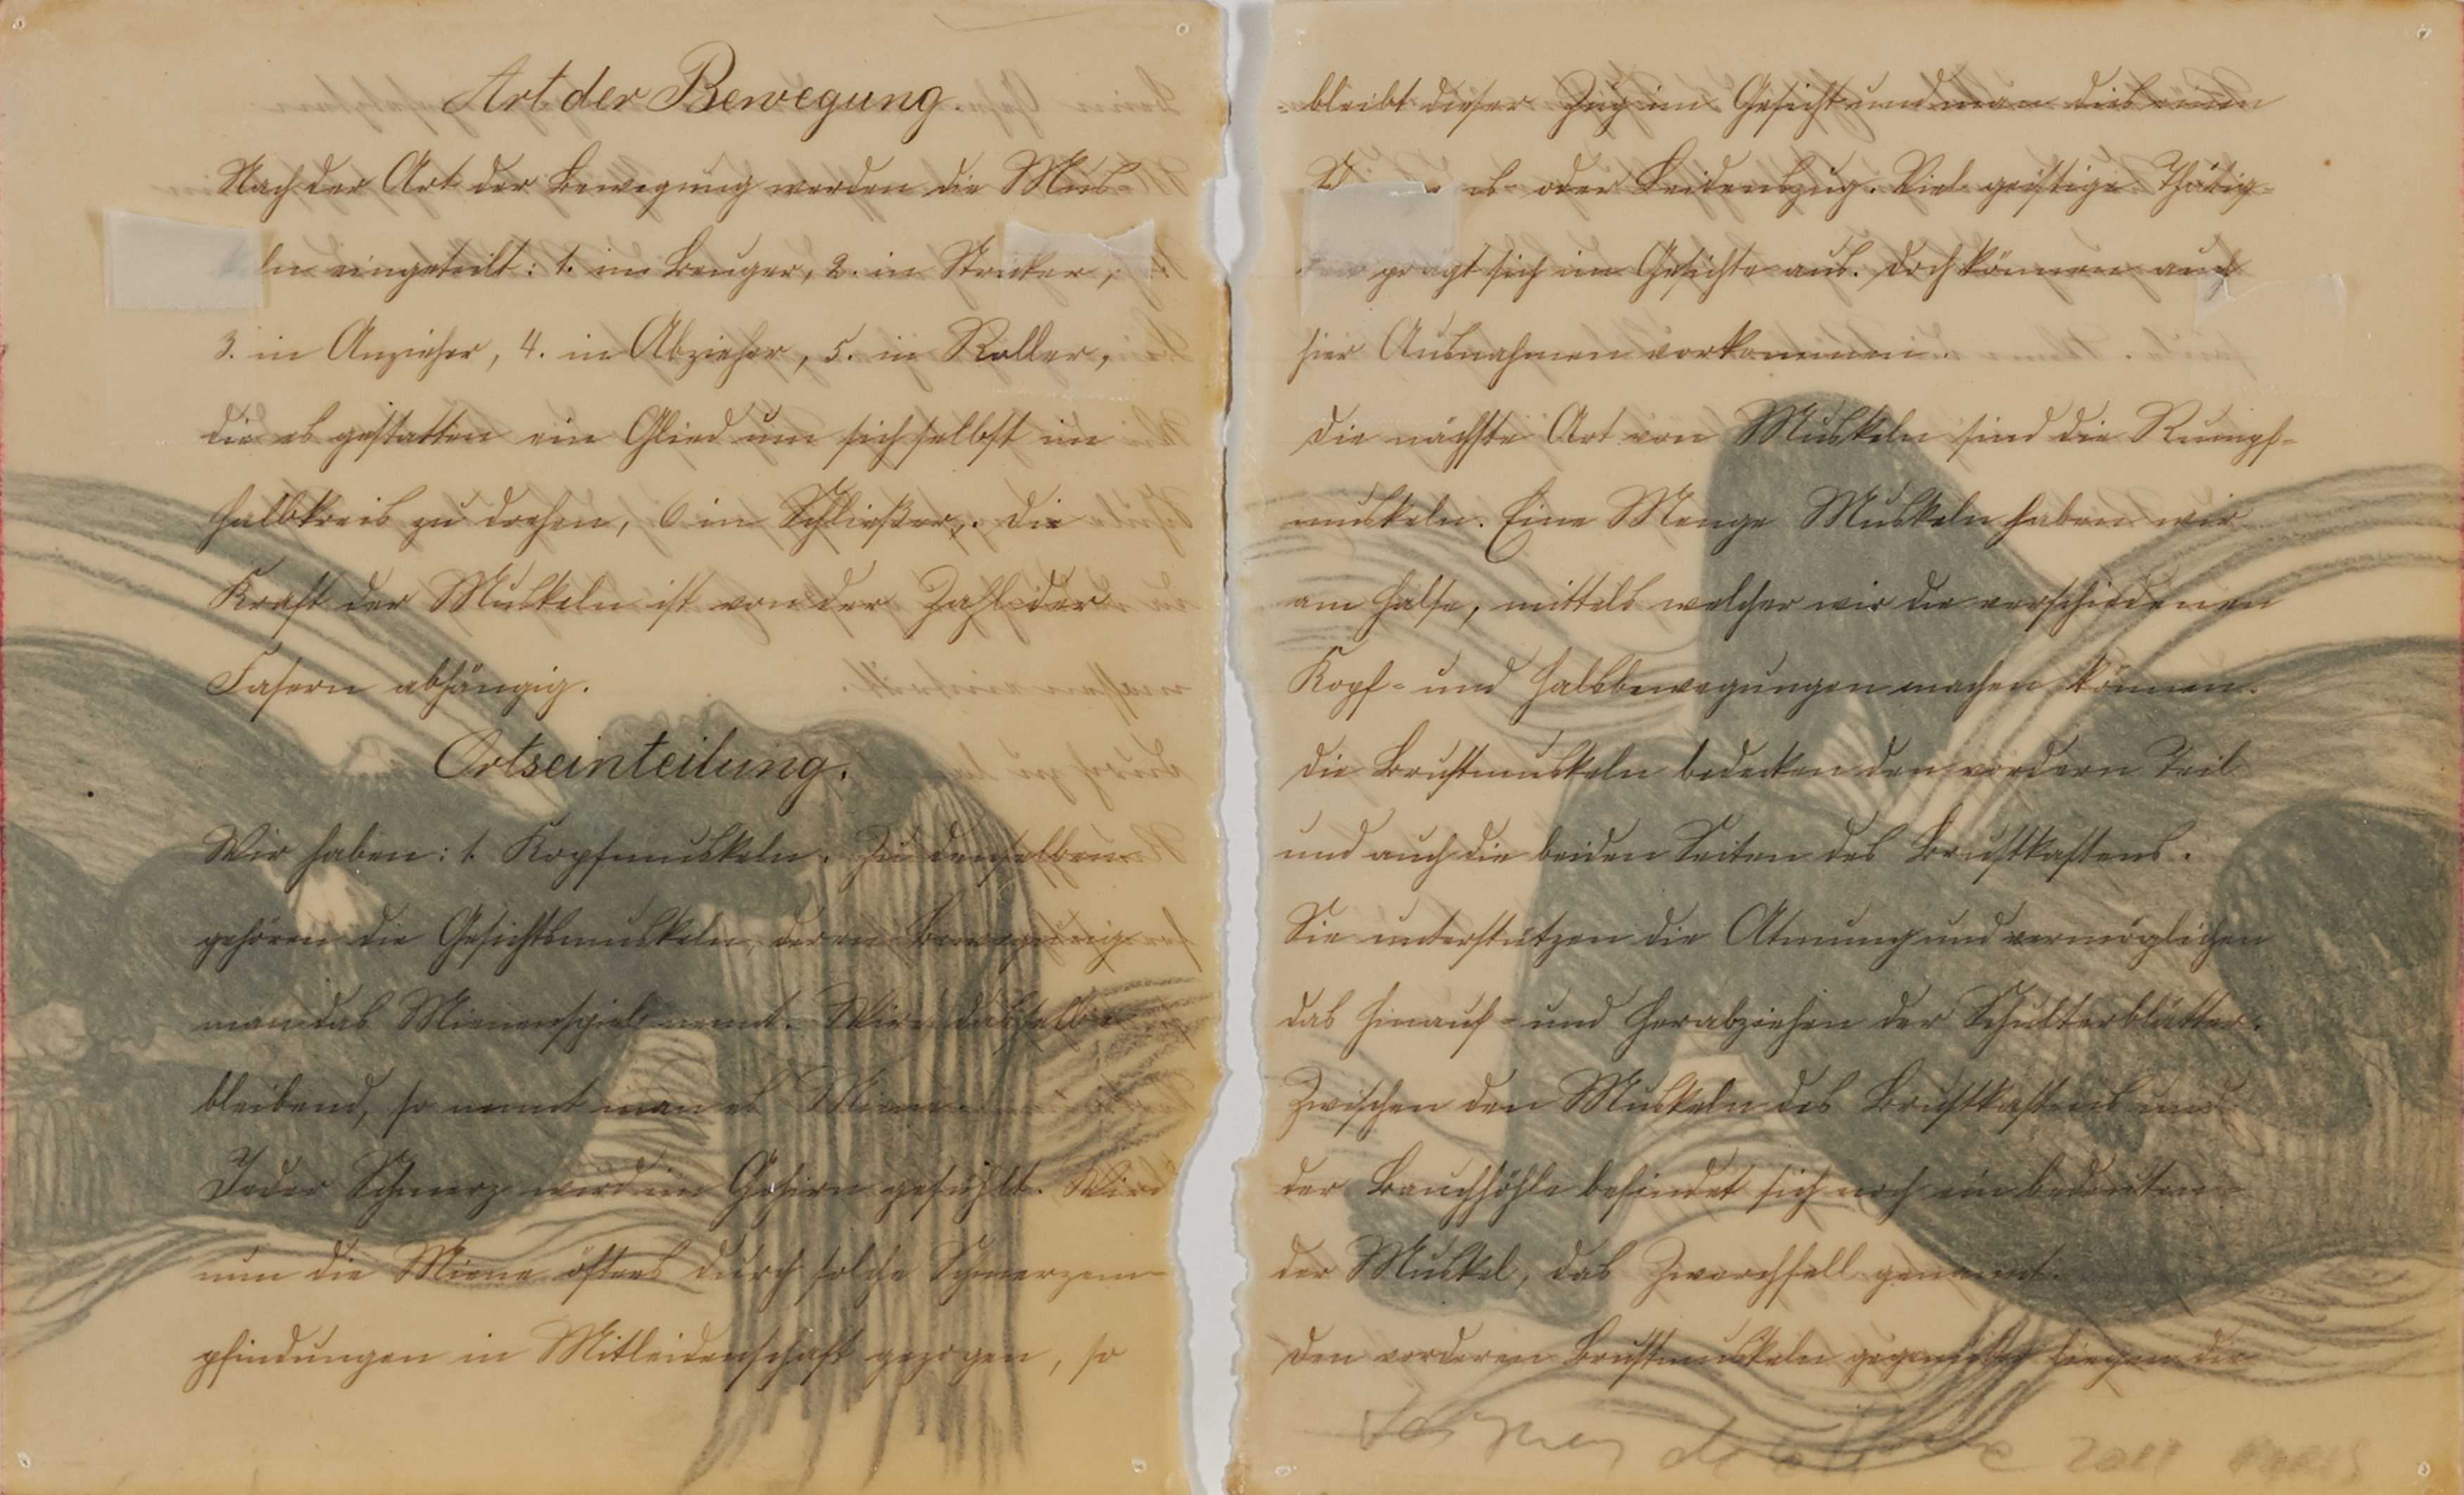 Art der Bewegung.
Nach der Art der Bewegung werden die Mus-
keln eingeteilt: 1. in Beuger, 2. in Strecker,
3. in Anzieher, 4. in Abzieher, 5. in Roller,
die es gestatten ein Glied um sich selbst im
Halbkreis zu drehen, 6 in Schließer. Die
Kraft der Muskeln ist von der Zahl der
Fasern abhängig.
Ortseinteilung.
Wir haben: 1. Kopfmuskeln. Zu denselben
gehören die Gesichtsmuskeln, deren Bewegung
man das Mienenspiel nennt. Wird dasselbe
bleibend, so nennt man es Miene.
Jeder Schmerz wird im Gehirn gefühlt. Wird
nun die Miene öfters durch solche Schmerzem-
pfindungen in Mitleidenschaft gezogen, so
bleibt dieser Zug im Gesicht und man
oder Leidenszug. Viel geistige Thätig-
prägt sich im Gesichte aus. Doch können auch
hier Ausnahmen vorkommen.
Die nächste Art von Muskeln sind die Rumpf-
muskeln. Eine Menge Muskeln haben wir
am Halse, mittels welcher wir die verschiedenen
Kopf- und Halsbewegungen machen können.
Die Brustmuskeln bedecken den vordern Teil
und auch die beiden Seiten des Brustkastens.
Sie unterstützen die Atmung und vermöglichen
das Hinauf- und Herabziehen der Schulterblätter.
Zwischen den Muskeln des Brustkastens und
der Bauchhöhle befindet sich noch ein bedeuten-
der Muskel, das Zwerchfell genannt.
Den vorderen Brustmuskeln gegenüber liegen die
2011 PARIS